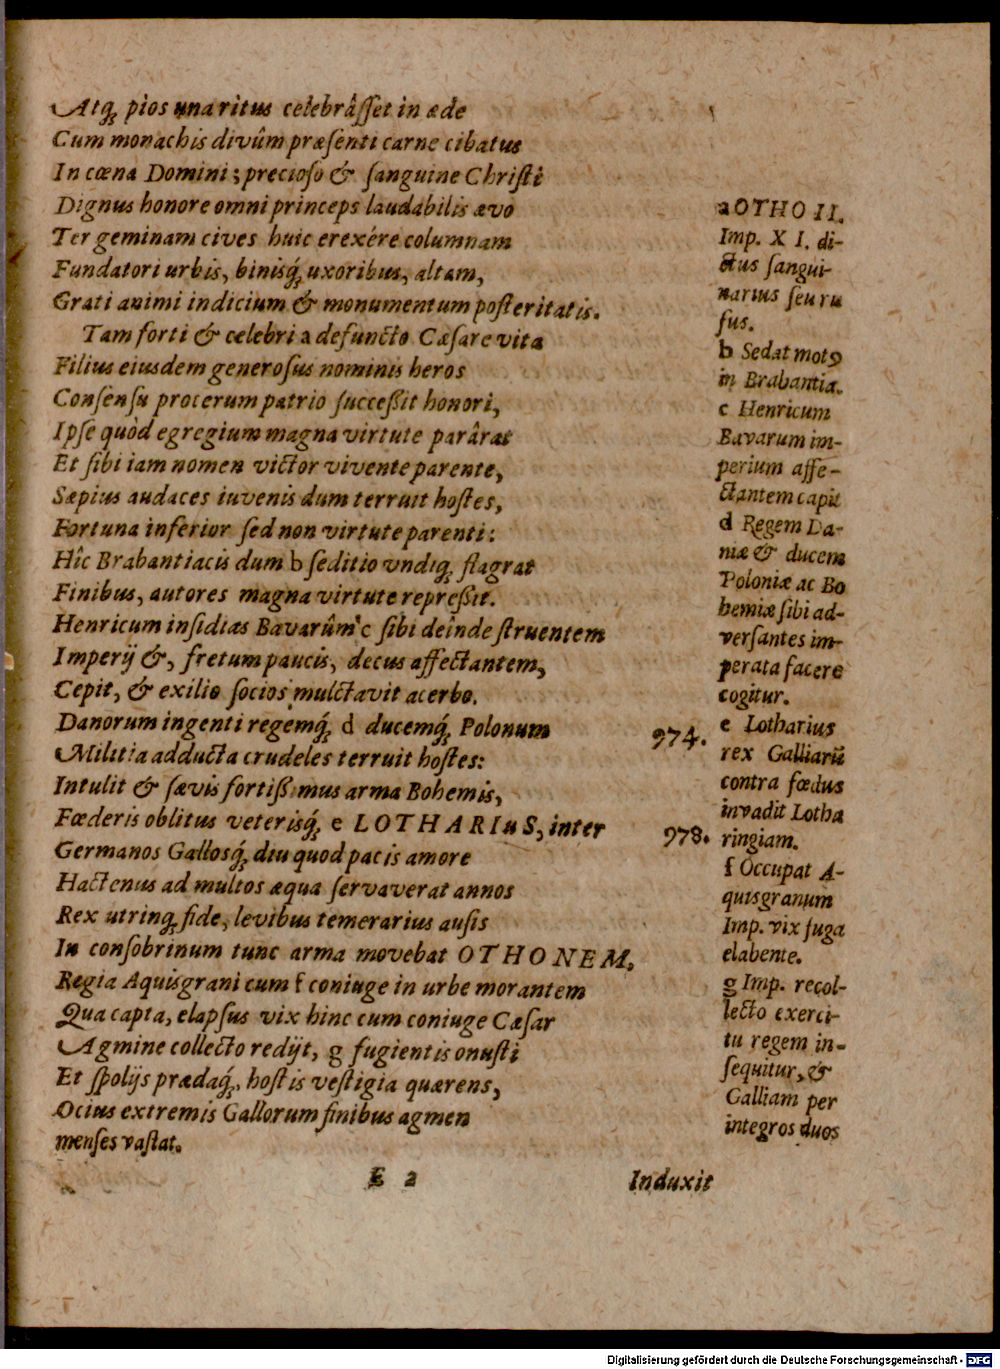 Atq́ꝫ pios una ritus celebrâſſet in æde
Cum monachis divûm præſenti carne cibatus
In cœna Domini; precioſo & ſanguine Chriſti
Dignus honore omni princeps laudabilis ævo
Ter geminam cives huic erexére columnam
Fundatori urbis, binisq́ꝫ uxoribus, altam,
Grati animi indicium & monumentum poſteritatis.
Tam forti & celebri a defuncto Cæſare vita
Filius eiusdem generoſus nominis heros
Conſenſu procerum patrio ſucceßit honori,
Ipſe quòd egregium magna virtute parârat
Et ſibi iam nomen victor vivente parente,
Sæpius audaces iuvenis dum terruit hoſtes,
Fortuna inferior ſed non virtute parenti:
Hîc Brabantiacis dum b ſeditio undiq́ꝫ flagrat
Finibus, autores magna virtute repreßit.
Henricum inſidias Bavarûm c ſibi deinde ſtruentem
Imperij &, fretum paucis, decus affectantem,
Cepit, & exilio ſocios mulctavit acerbo.
Danorum ingenti regemq́ꝫ d ducemq́ꝫ Polonum
Militia adducta crudeles terruit hoſtes:
Intulit & ſævis fortißimus arma Bohemis,
Fœderis oblitus veterisq́ꝫ e LOTHARIuS, inter
Germanos Gallosq́ꝫ diu quod pacis amore
Hactenus ad multos æqua ſervaverat annos
Rex utrinq́ꝫ fide, levibus temerarius auſis
In conſobrinum tunc arma movebat OTHONEM,
Regia Aquisgrani cum f coniuge in urbe morantem
Qua capta, elapſus vix hinc cum coniuge Cæſar
Agmine collecto redijt, g fugientis onuſti
Et ſpolijs prædaq́ꝫ, hoſtis veſtigia quærens,
Ocius extremis Gallorum finibus agmen
974.
978.
a OTHO II.
Imp. XI. di-
ctus ſangui-
narius ſeu ru
fus.
b Sedat motꝰ
in Brabantia.
c Henricum
Bavarum im-
perium affe-
ctantem capit
d Regem Da-
niæ & ducem
Poloniæ ac Bo
hemiæ ſibi ad-
verſantes im-
perata facere
cogitur.
e Lotharius
rex Galliarū
contra fœdus
invadit Lotha
ringiam.
f Occupat A-
quisgranum
Imp. vix fuga
elabente.
g Imp. recol-
lecto exerci-
tu regem in-
ſequitur, &
Galliam per
integros duos
menſes vaſtat.
E 2
Induxit
Digitalisierung gefördert durch die Deutsche Forschungsgemeinschaft - DFG